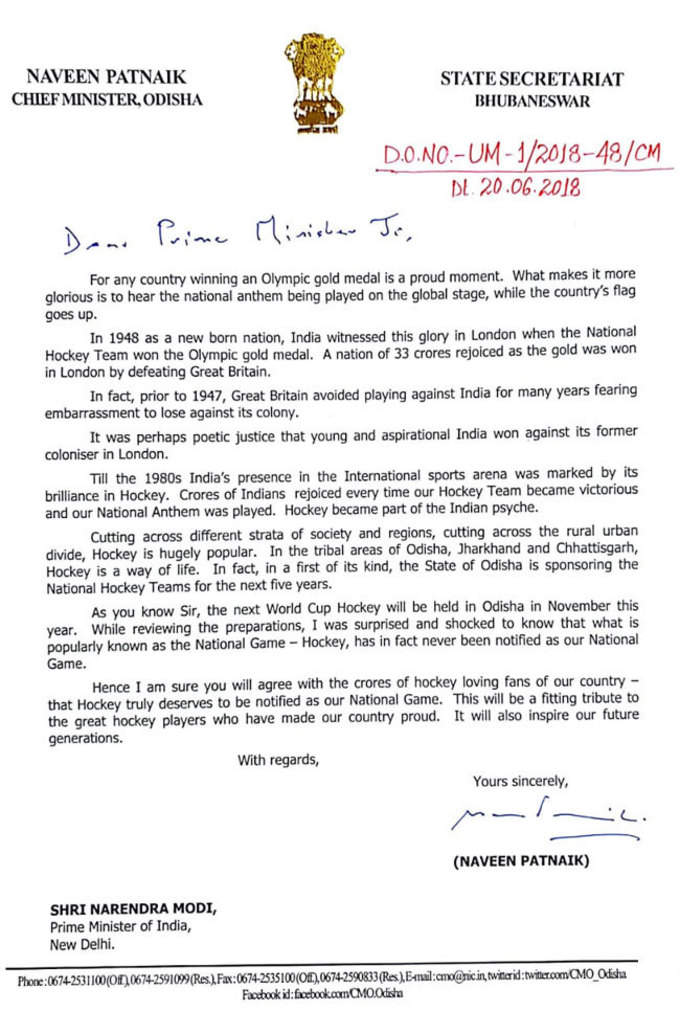 NAVEEN PATNAIK
CHIEF MINISTER, ODISHA
STATE SECRETARIAT
BHUBANESWAR
D.O.NO.-UM-1/2018-48/CM
Dt. 20.06.2018
Dear Prime Minister Ji,
For any country winning an Olympic gold medal is a proud moment. What makes it more
glorious is to hear the national anthem being played on the global stage, while the country's flag
goes up.
In 1948 as a new born nation, India witnessed this glory in London when the National
Hockey Team won the Olympic gold medal. A nation of 33 crores rejoiced as the gold was won
in London by defeating Great Britain.
In fact, prior to 1947, Great Britain avoided playing against India for many years fearing
embarrassment to lose against its colony.
It was perhaps poetic justice that young and aspirational India won against its former
coloniser in London.
Till the 1980s India's presence in the International sports arena was marked by its
brilliance in Hockey. Crores of Indians rejoiced every time our Hockey Team became victorious
and our National Anthem was played. Hockey became part of the Indian psyche.
Cutting across different strata of society and regions, cutting across the rural urban
divide, Hockey is hugely popular. In the tribal areas of Odisha, Jharkhand and Chhattisgarh,
Hockey is a way of life. In fact, in a first of its kind, the State of Odisha is sponsoring the
National Hockey Teams for the next five years.
As you know Sir, the next World Cup Hockey will be held in Odisha in November this
year. While reviewing the preparations, I was surprised and shocked to know that what is
popularly known as the National Game – Hockey, has in fact never been notified as our National
Game.
Hence I am sure you will agree with the crores of hockey loving fans of our country –
that Hockey truly deserves to be notified as our National Game. This will be a fitting tribute to
the great hockey players who have made our country proud. It will also inspire our future
generations.
With regards,
Yours sincerely,
(NAVEEN PATNAIK)
SHRI NARENDRA MODI,
Prime Minister of India,
New Delhi.
Phone : 0674-2531100 (Off.), 0674-2591099 (Res.), Fax : 0674-2535100 (Off.), 0674-2590833 (Res.), E-mail : cmo@nic.in, twitter id : twitter.com/CMO_Odisha
Facebook id : facebook.com/CMO.Odisha